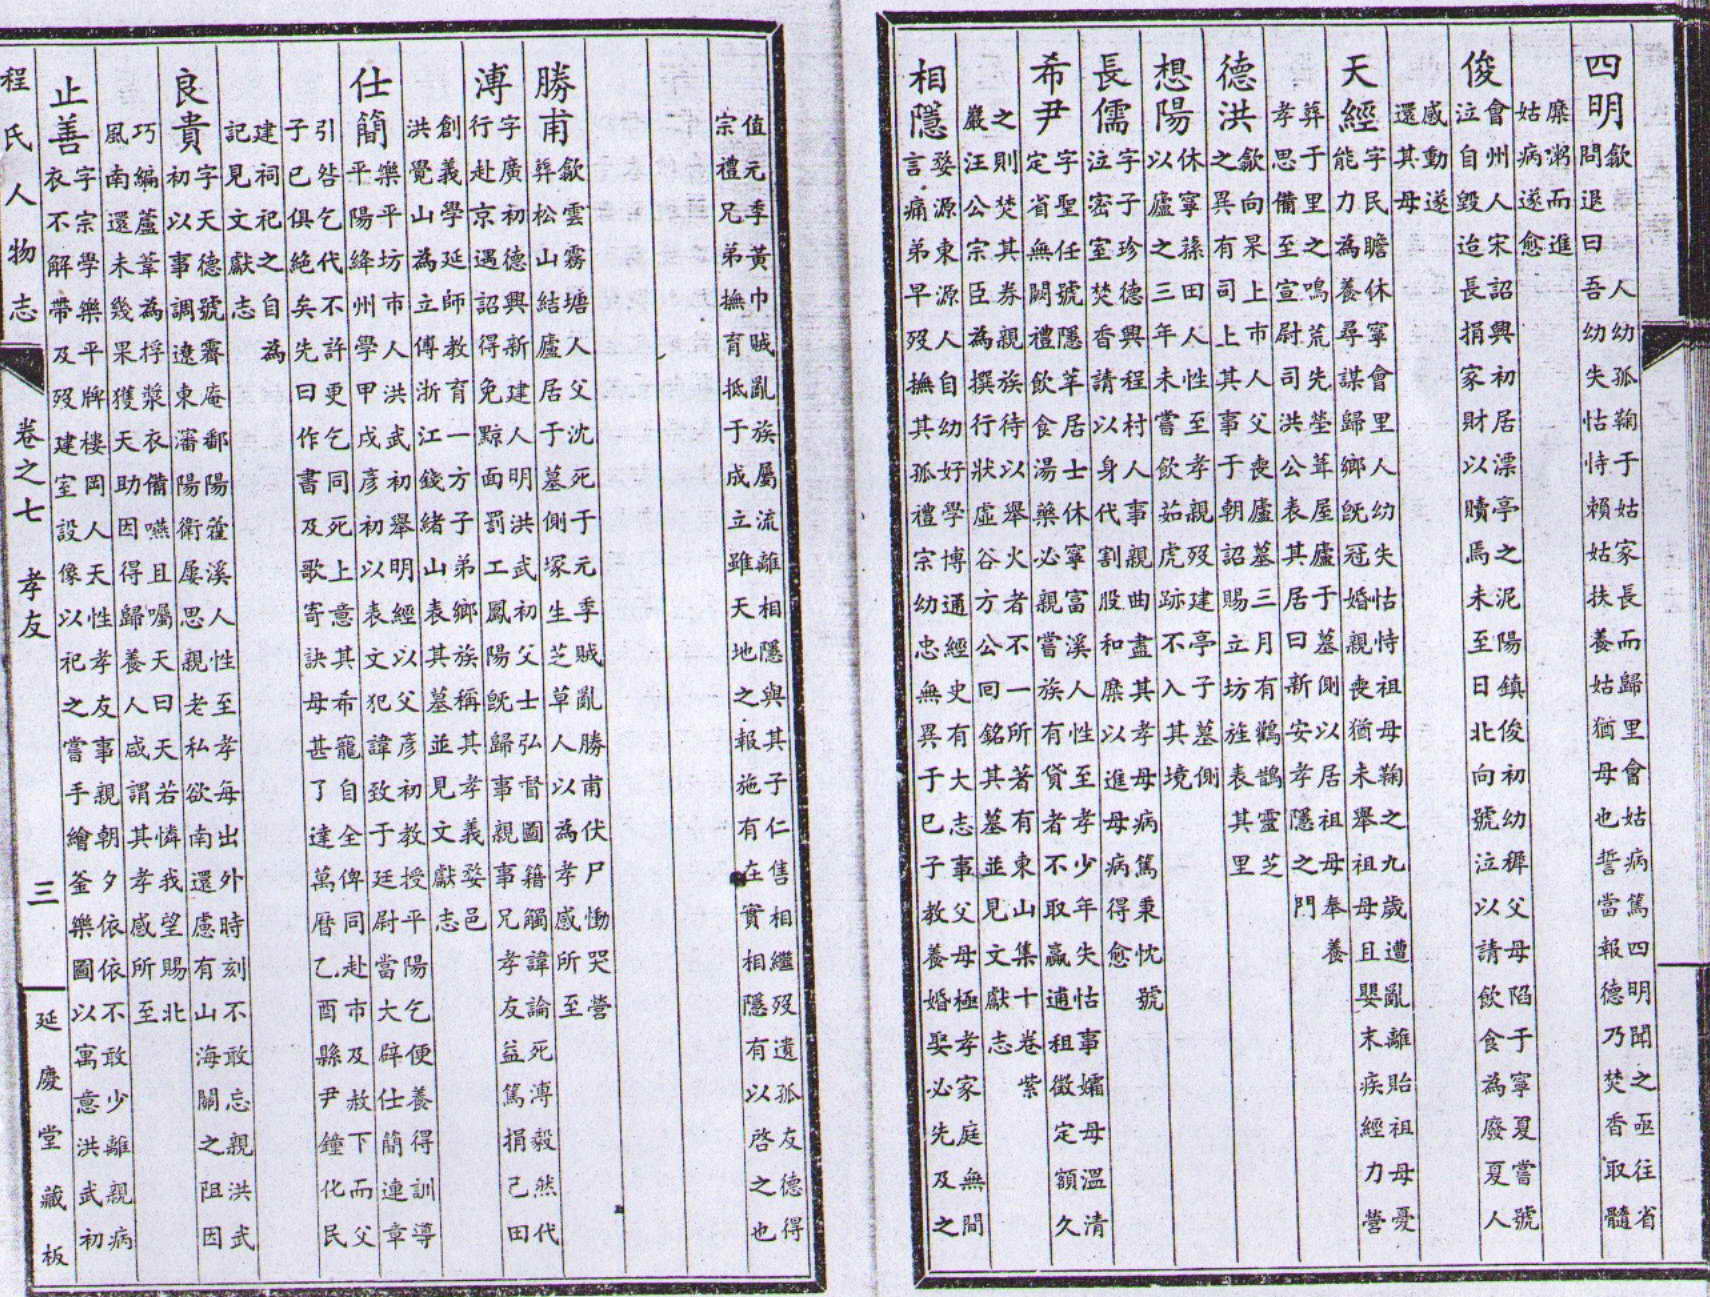 四明
歙人幼孤鞠于姑家長而歸里會姑病篤四明聞之亟往省
問退曰吾幼失怙恃賴姑扶養姑猶母也誓當報德乃焚香取髓
糜粥而進
姑病遂愈
俊
會州人宋詔興初居漂亭之泥陽鎮俊初幼穉父母陷于寧夏嘗號
泣自毀迨長捐家財以贖焉未至日北向號泣以請飲食為廢夏人
感動遂
還其母
天經
字民瞻休寧會里人幼失怙恃祖母鞠之九歲遭亂離貽祖母憂
能力為養尋謀歸鄉既冠婚親喪猶未舉祖母且嬰末疾經力營
葬于里之鳴荒先塋葺屋廬于墓側以居祖母奉養
孝思備至宣尉司洪公表其居曰新安孝隱之門
德洪
歙向杲上市人父喪廬墓三月有鸛鵲靈芝
之異有司上其事于朝詔賜立坊旌表其里
想陽
休寧蓀田人性至孝親歿建亭子墓側
以廬之三年未嘗飲茹虎跡不入其境
長儒
字子珍德興程村人事親曲盡其孝母病篤秉忱號
泣密室焚香請以身代割股和糜以進母病得愈
希尹
字聖任號隱莘居士休寧富溪人性至孝少年失怙事孀母溫清
定省無闕禮飲食湯藥必親嘗族有貸者不取贏逋租徵定額久
之則焚其券親族待以舉火者不一所著有東山集十卷紫
巖汪公宗臣為撰行狀虛谷方公回銘其墓並見文獻志
相隱
婺源東源人自幼好學博通經史有大志事父母極孝家庭無間
言痛弟早歿撫其孤禮宗幼忠無異于己子教養婚娶必先及之
值元季黃巾賊亂族屬流離相隱與其子仁售相繼歿遺孤友德得
宗禮兄弟撫育抵于成立雖天地之報施有在實相隱有以啓之也
勝甫
歙雲霧塘人父沈死于元季賊亂勝甫伏尸慟哭營
葬松山結廬居于墓側塚生芝草人以為孝感所至
溥
字廣初德興新建人明洪武初父士弘督圖籍觸諱論死溥毅然代
行赴京遇詔得免黥面罰工鳳陽既歸事親事兄孝友益篤捐己田
創義學延師教育一方子弟鄉族稱其孝義婺邑
洪覺山為立傳浙江錢緒山表其墓並見文獻志
仕簡
樂平坊市人洪武初舉明經以父彥初教授平陽乞便養得訓導
平陽絳州學甲戌彥初以表文犯諱致于廷尉當大辟仕簡連章
引咎乞代不許更乞同死上意其希寵自全俾同赴市及赦下而父
子已俱絶矣先曰作書及歌寄訣母甚了達萬曆乙酉縣尹鐘化民
建祠祀之自為
記見文獻志
良貴
字天德號霽庵鄱陽藿溪人性至孝每出外時刻不敢忘親洪武
初以事調遼東瀋陽衛屢思親老私欲南還慮有山海關之阻因
巧編蘆葦為桴漿衣備嚥且囑天曰天若憐我望賜北
風南還未幾果獲天助因得歸養人咸謂其孝感所至
止善
字宗學樂平牌樓岡人天性孝友事親朝夕依依不敢少離親病
衣不解帶及歿建室設像以祀之嘗手繪釜樂圖以寓意洪武初
程氏人物志
卷之七 孝友
三
延慶堂藏板